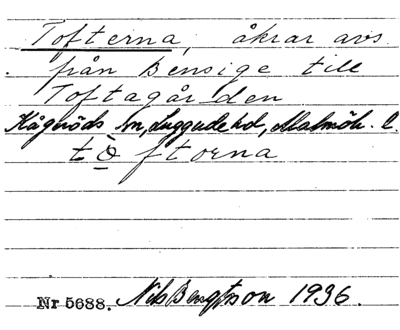 Tofterna, åkrar avs.
från Bensige till
Toftagården
Kågeröds sn, Luggude hd, Malmöh. l.
tòftorna
Nr 5688. Nils Bengtsson 1936.